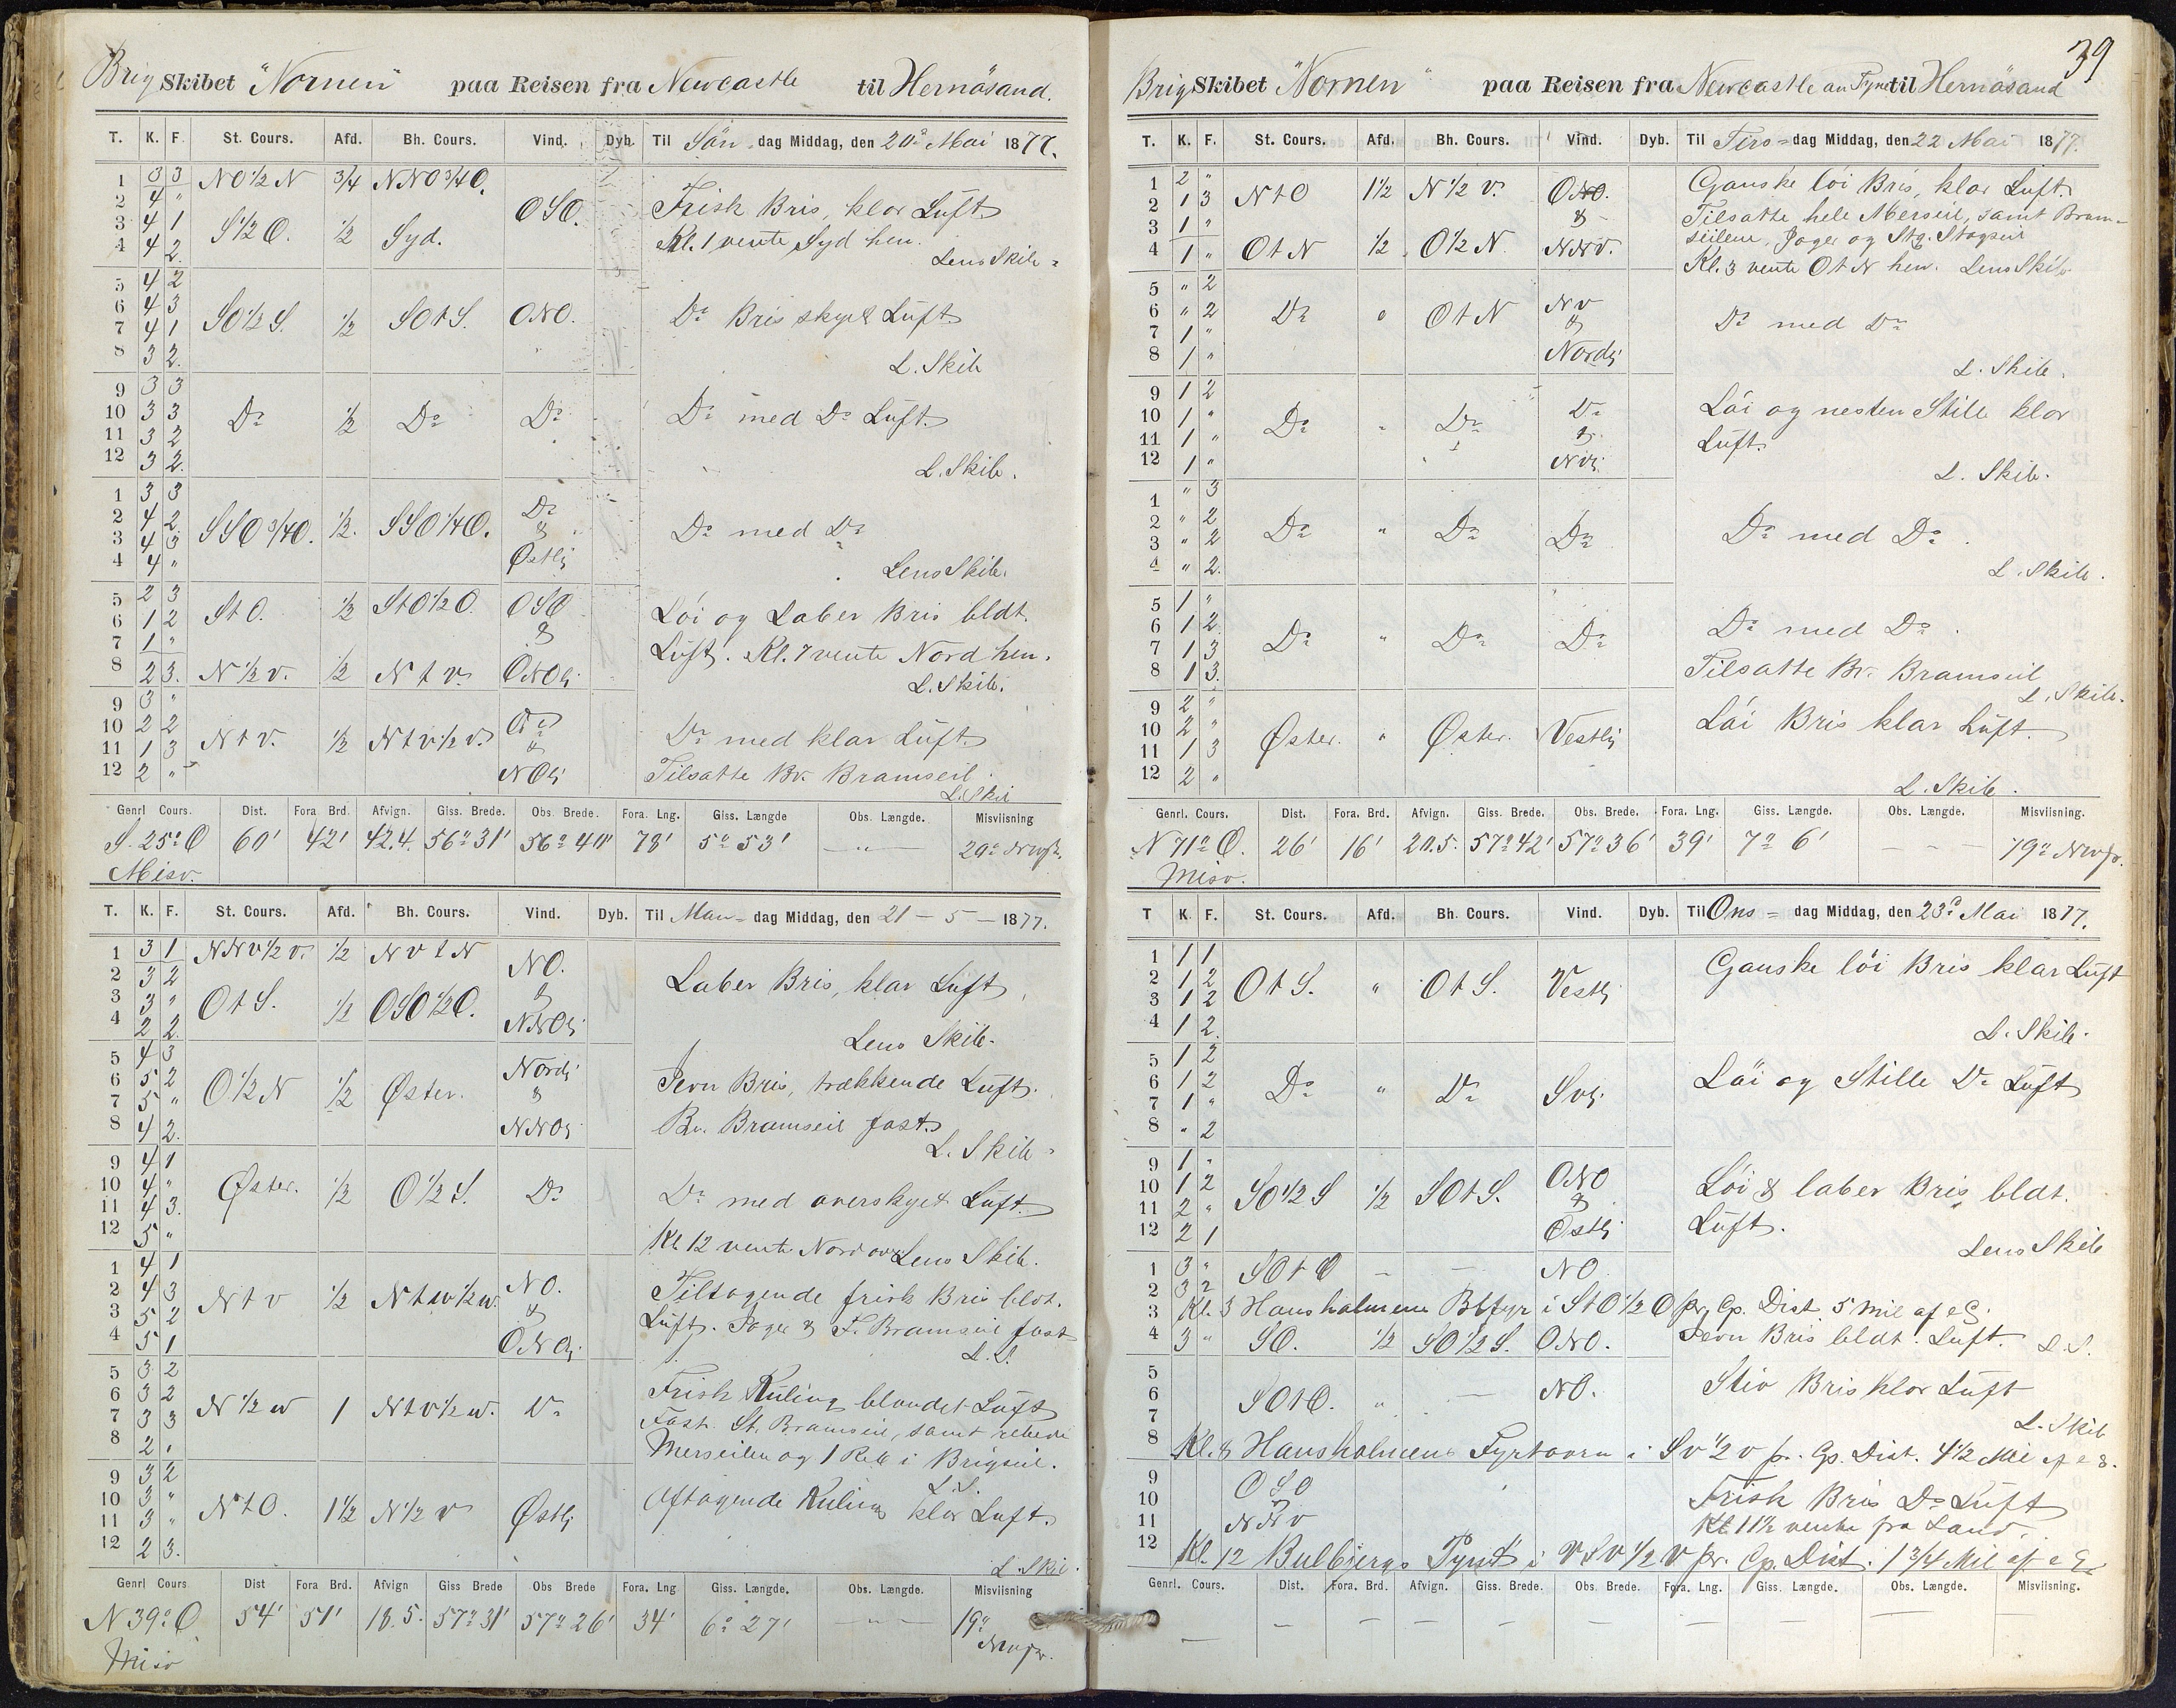 Brig Skibet "Nornen" paa Reisen fra Newcastle til Hernösand.
T. K. F. St. Cours. Afd. Bh. Cours. Vind. Dyb. Til Søn dag Middag, den 20de Mai 1877.
1 3 3 NO 1/2 N 3/4 NNO 3/4 O.
2 4 " OSO. Frisk Bris, klar Luft
3 4 1 S 1/2 O. 1/2 Syd. Kl. 1 vente Syd hen.
4 4 2 Lens Skib
5 4 2
6 4 3 SO 1/2 S. 1/2 SO t S. ONO. Do Bris skyet Luft
7 4 1
8 3 2. L. Skib
9 3 3
10 3 3 Do 1/2 Do Do Do med Do Luft.
11 3 2
12 3 2. L. Skib.
1 3 3
2 4 2. SSO 3/4 O. 1/2. SSO 1/4 O. Do & Østlig Do med Do
3 4 3
4 4 " Lens Skib.
5 2 3 St O. 1/2 St O 1/2 O. OSO & Løi og Laber Bris bldt.
6 1 2
7 1 " Luft. Kl. 7 vente Nord hen.
8 2 3. N 1/2 v. 1/2 N t v. ONOlig L. Skib.
9 3 "
10 2 2 N t v. 1/2 N t v 1/2 v. Do & NOlig Do med klar Luft.
11 1 3
12 2 " Tilsatte Bv. Bramseil.
L. Skib
Genrl Cours. Dist. Fora Brd. Afvign. Giss. Brede. Obs. Brede. Fora. Lng. Giss. Længde Obs. Længde. Misviisning
S. 25° O 60' 42' 42.4. 56° 31' 56° 40' 78' 5° 53' — " —
Misv.
T. K. F. St. Cours. Afd. Bh. Cours. Vind. Dyb. Til Man= dag Middag, den 21 – 5 – 1877.
1 3 1 NNv 1/2 v. 1/2 N v t N NO. &
2 3 2 Laber Bris, klar Luft
3 3 " O t S. 1/2 OSO 1/2 O. NNOlig
4 2 2. Lens Skib.
5 4 3 Nordlig
6 5 2 O 1/2 N 1/2 Øster. & Jevn Bris, trækkende Luft.
7 5 "
8 4 2. NNOlig Bv. Bramseil fast.
L. Skib
9 4 1
10 4 " Øster. 1/2 O 1/2 S. Do Do med overskyet Luft.
11 4 3.
12 5 " Kl 12 vente Nord over Lens Skib.
1 4 1
2 4 3 N t v 1/2 N t w 1/2 w. NO. & Tiltagende frisk Bris bldt.
3 5 2 Luft. Jager & F. Bramseil fast
4 5 1 ONOlig L. S.
5 3 2
6 3 2 N 1/2 w 1 N t v 1/2 w. Do Frisk Kuling blandet Luft
7 3 3 Fast St. Bramseil, samt rebede
8 2 , Merseilen og 1 Reb i Brigseil.
L. S.
9 3 2
10 3 " N t O. 1 1/2 N 1/2 v Østlig Aftagende Kuling klar Luft.
11 3 "
12 2 3. L. Skib.
Genrl Cours Dist Fora Brd. Afvign Giss Brede Obs Brede Fora. Lng Giss. Længde. Obs. Længde. Misviisning
N 39° O 54' 51' 18.5. 57° 31' 57° 26' 34' 6° 27' — " — 19°
Misv
39
Brig Skibet "Nornen" paa Reisen fra Newcastle on Tyne til Hernösand
T. K. F. St. Cours. Afd. Bh. Cours. Vind. Dyb. Til Tirs= dag Middag, den 22 Mai 1877.
1 2 " Ganske löi Bris, klar Luft.
2 1 3 N t O 1 1/2 N 1/2 v. Tilsatte hele Merseil, samt Bram-
3 1 " & seilene, Jager og Stg. Stagseil
4 1 " O t N 1/2 O 1/2 N NNv. Kl. 3 vente O t N hen. Lens Skib
5 " 2
6 " 2 Do " O t N Nv & Do med Do
7 1 "
8 1 " Nordlig L. Skib.
9 1 2 Do Löi og nesten Stille klar
10 1 " Do " Do &
11 1 " Luft.
12 1 " Nvlig L. Skib.
1 " 3
2 " 2 Do " Do Do Do med Do.
3 " 2
4 " 2. L. Skib.
5 1 "
6 1 2. Do " Do Do Do med Do.
7 1 3
8 1 3. Tilsatte Bv. Bramseil L. Skib.
9 2 " Löi Bris klar Luft.
10 2 " Øster. " Øster. Vestlig
11 1 3
12 2 " L. Skib.
Genrl. Cours. Dist. Fora. Brd. Afvign. Giss. Brede. Obs. Brede. Fora. Lng. Giss. Længde. Obs. Længde. Misviisning.
N 71° O. 26' 16' 20.5. 57° 42' 57° 36' 39' 7° 6' — — — 19°
Misv.
T K. F. St. Cours. Afd. Bh. Cours. Vind. Dyb. Til Ons= dag Middag, den 23de Mai 1877.
1 1 1
2 1 2 O t S. " O t S. Vestlig Ganske löi Bris klar Luft
3 1 2
4 1 2. L. Skib.
5 1 2
6 1 2 Do " Do Svlig. Löi og Stille Do Luft
7 1 "
8 " 2
9 1 "
10 1 2 SO 1/2 S 1/2 SO t S. ONO & Löi & laber Bris bldt.
11 2 "
12 2 1 Østlig Luft.
Lens Skib
1 3 " SO t O — — NO
2 3 2
3 Kl. 3 Hansholmens Blfyr i St O 1/2 O pr. Cp. Dist. 5 Mil af
4 3 " SO. 1/2 SO 1/2 S. ONO. Jevn Bris bldt. Luft. L. S.
5
6 SO t O. " — NO. Stiv Bris klar Luft
7 L. Skib
8 Kl. 8 Hansholmens Fyrtaarn i Sv 1/2 v pr. Cp. Dist. 4 1/2 Mil af
9 OSO
10 Frisk Bris Do Luft
11 NNv Kl 11 1/2 vente fra Land.
12 Kl. 12 Bulbjergs Pynt i vSv 1/2 v pr. Cp. Dist. 1 3/4 Mil af
Genrl. Cours. Dist. Fora. Brd. Afvign. Giss. Brede. Obs. Brede. Fora. Lng. Giss. Længde. Obs. Længde. Misviisning.
— — — — — — — — — —